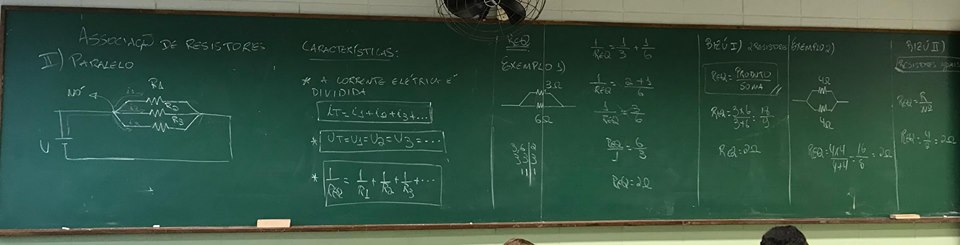 ASSOCIAÇÃO DE RESISTORES
II) PARALELO
NÓ
R1
R2
R3
i1
i2
i3
U
CARACTERÍSTICAS:
* A CORRENTE ELÉTRICA É
DIVIDIDA
iT=i1+i2+i3+...
* UT=U1=U2=U3=...
* 1/REQ = 1/R1 + 1/R2 + 1/R3 + ...
REQ
EXEMPLO 1)
3Ω
6Ω
3,6 | 2
3,3 | 3
1,1
1/REQ = 1/3 + 1/6
1/REQ = 2+1/6
1/REQ = 3/6
REQ/1 = 6/3
REQ=2Ω
BIZÚ I) 2 RESISTORES
REQ = PRODUTO/SOMA
REQ = 3x6/3+6 = 18/9
REQ=2Ω
EXEMPLO 2)
4Ω
4Ω
REQ = 4x4/4+4 = 16/8 = 2Ω
BIZÚ II)
RESISTORES IGUAIS
REQ = 4/2 = 2Ω